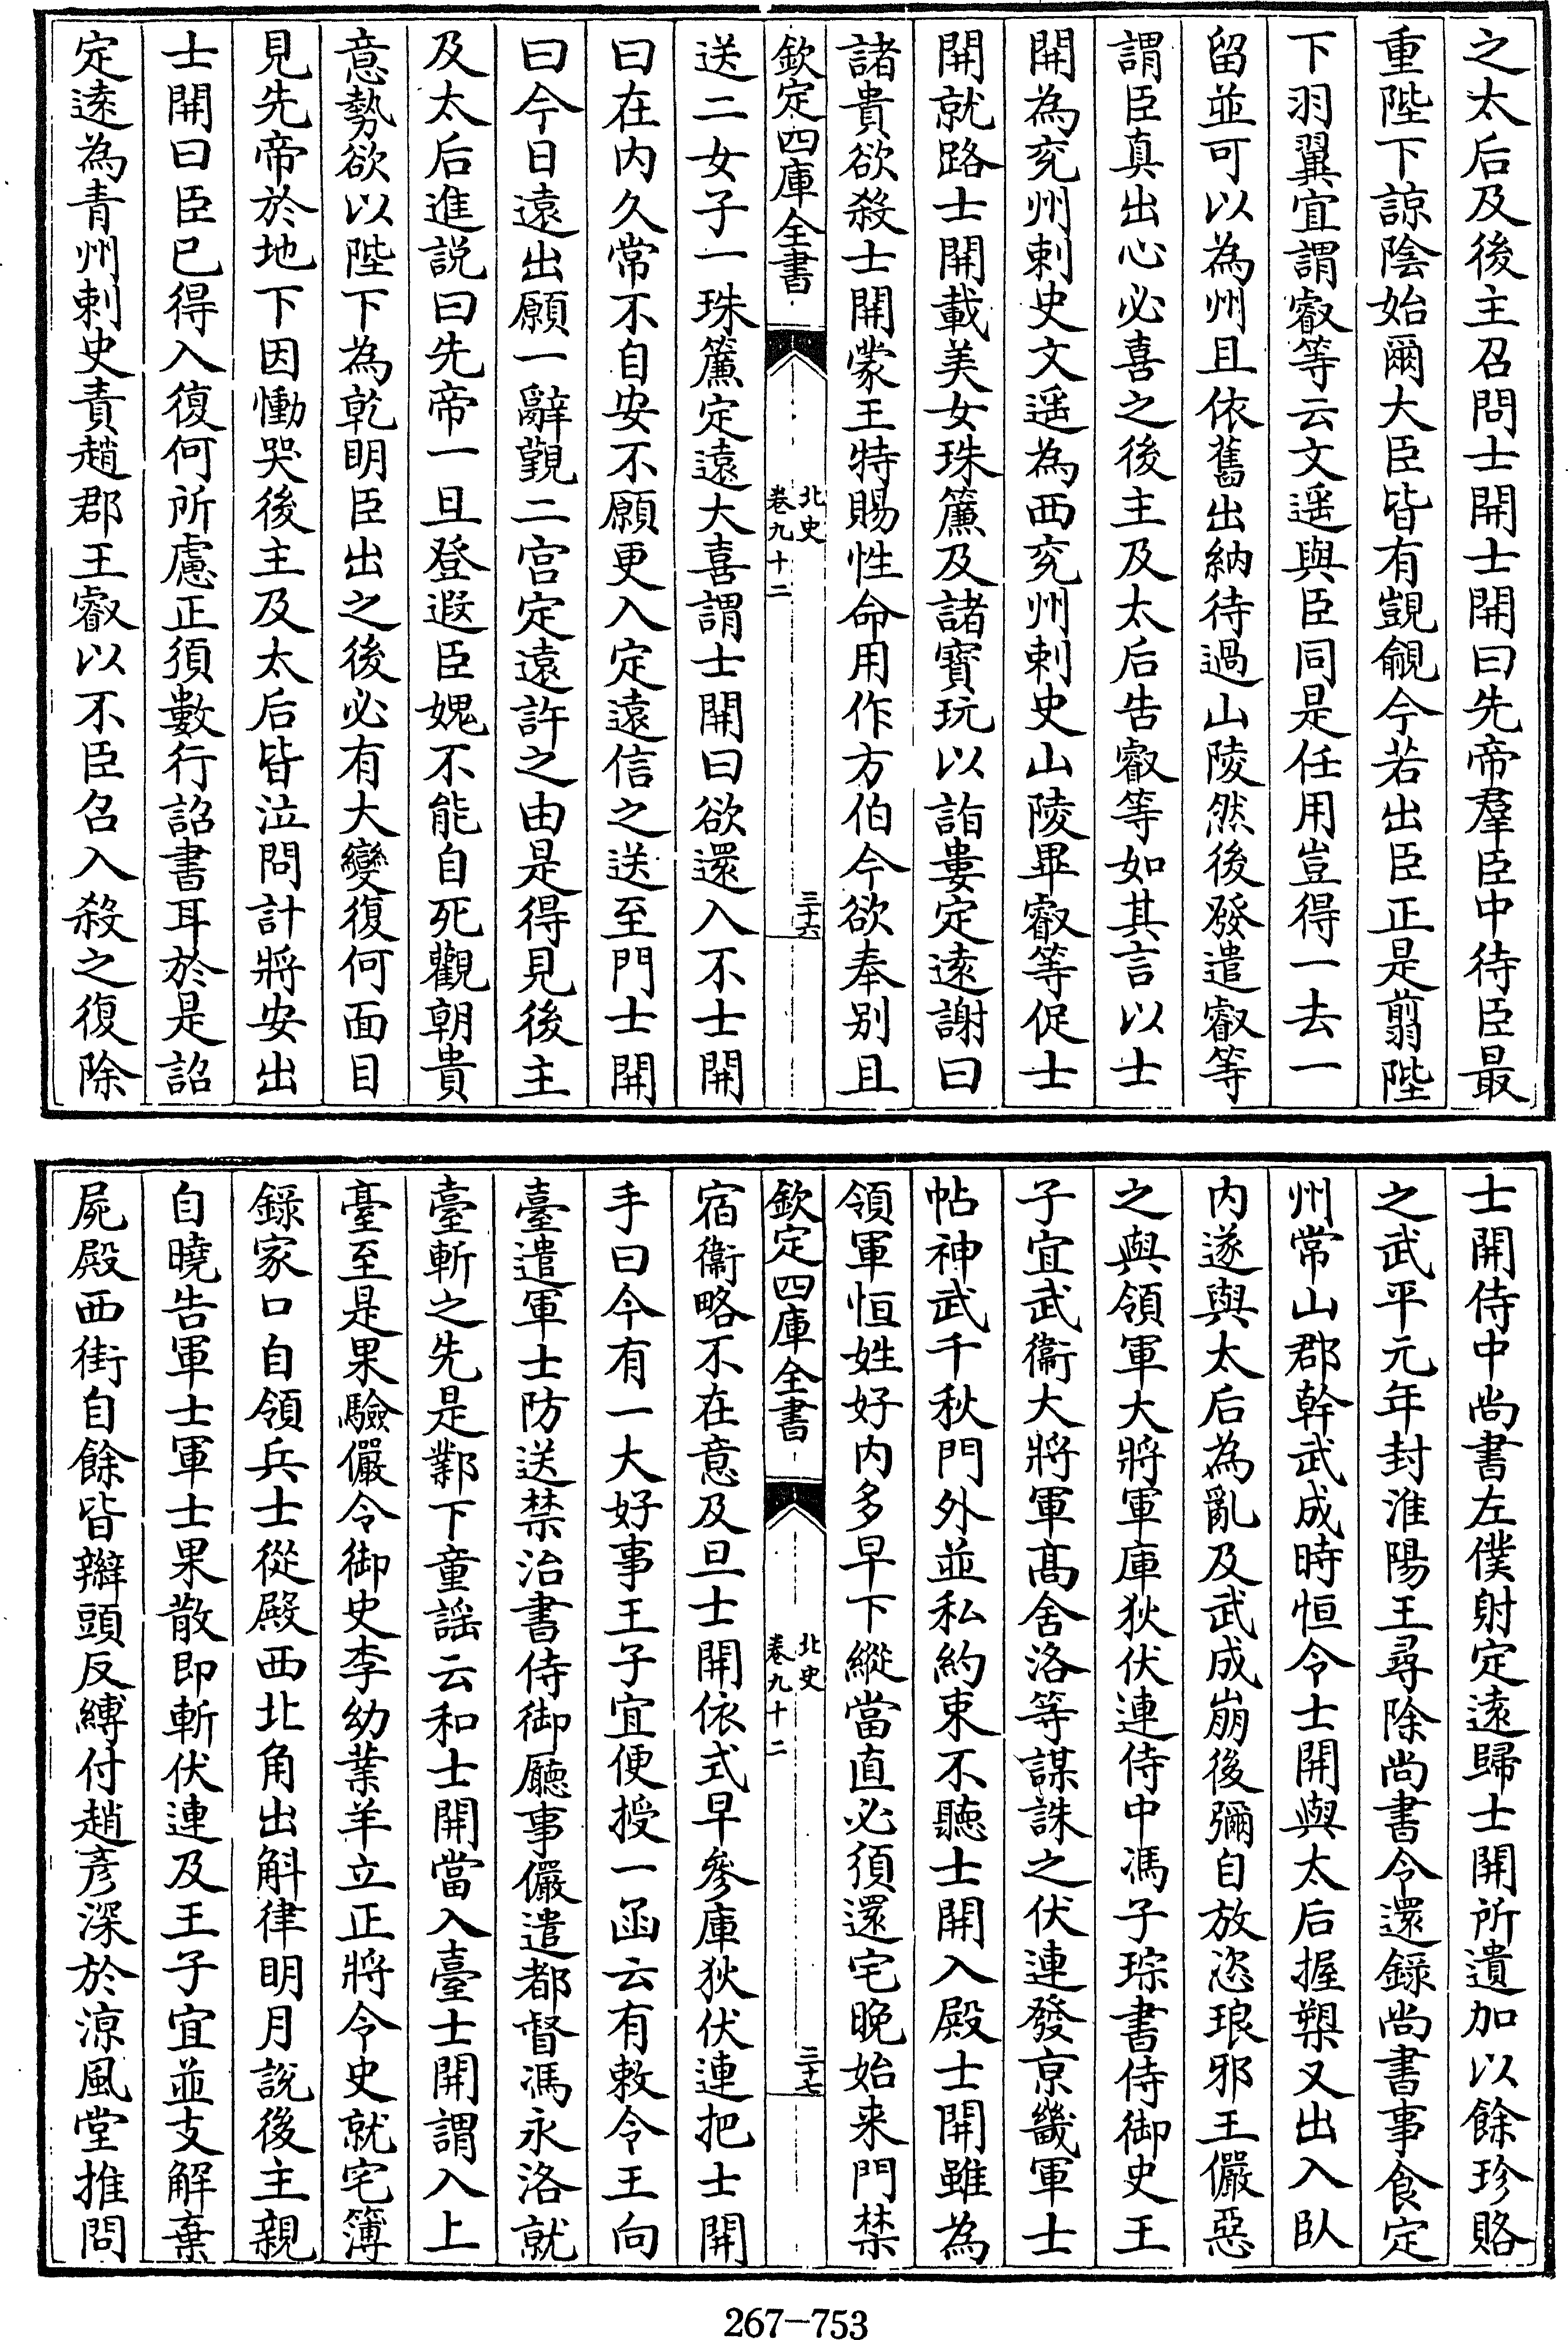 之太后及後主召問士開士開曰先帝羣臣中待臣最
重陛下諒陰始爾大臣皆有覬覦今若出臣正是翦陛
下羽翼宜謂叡等云文遥與臣同是任用豈得一去一
留並可以為州且依舊出納待過山陵然後發遣叡等
謂臣真出心必喜之後主及太后告叡等如其言以士
開為兖州刺史文遥為西兖州刺史山陵畢叡等促士
開就路士開載美女珠簾及諸寳玩以詣婁定逺謝曰
諸貴欲殺士開蒙王特賜性命用作方伯今欲奉别且
欽定四庫全書
北史
卷九十二
三十六
送二女子一珠簾定遠大喜謂士開曰欲還入不士開
曰在内久常不自安不願更入定遠信之送至門士開
曰今日遠出願一辭覲二宫定遠許之由是得見後主
及太后進説曰先帝一旦登遐臣媿不能自死觀朝貴
意勢欲以陛下為乾明臣出之後必有大變復何面目
見先帝於地下因慟哭後主及太后皆泣問計將安出
士開曰臣已得入復何所慮正須數行詔書耳於是詔
定逺為青州刺史責趙郡王叡以不臣召入殺之復除
士開侍中尚書左僕射定逺歸士開所遺加以餘珍賂
之武平元年封淮陽王尋除尚書令還錄尚書事食定
州常山郡幹武成時恒令士開與太后握槊又出入卧
内遂與太后為亂及武成崩後彌自放恣琅邪王儼惡
之與領軍大將軍庫狄伏連侍中馮子琮書侍御史王
子宜武衞大將軍髙舍洛等謀誅之伏連發京畿軍士
帖神武千秋門外並私約束不聽士開入殿士開雖為
領軍恒姓好内多早下縱當直必須還宅晚始来門禁
欽定四庫全書
北史
卷九十二
三十七
宿衞略不在意及旦士開依式早參庫狄伏連把士開
手曰今有一大好事王子宜便授一函云有敕令王向
臺遣軍士防送禁治書侍御廳事儼遣都督馮永洛就
臺斬之先是鄴下童謡云和士開當入臺士開謂入上
臺至是果驗儼令御史李幼業羊立正將令史就宅簿
錄家口自領兵士從殿西北角出斛律明月説後主親
自曉告軍士軍士果散即斬伏連及王子宜並支解棄
屍殿西街自餘皆辮頭反縛付趙彦深於涼風堂推問
267-753